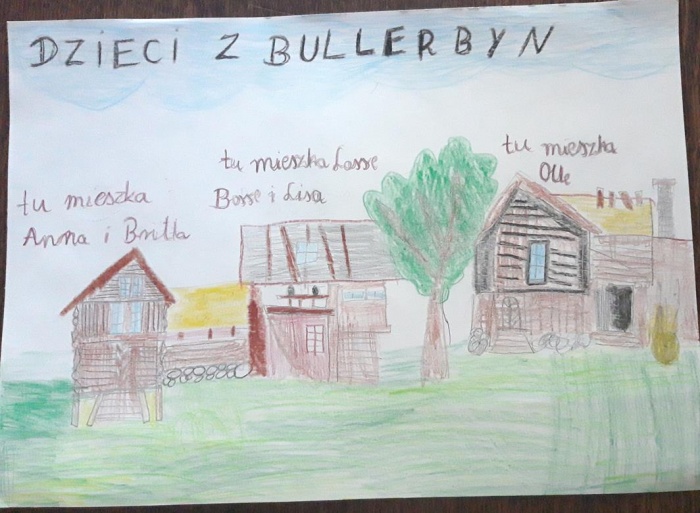 DZIECI Z BULLERBYN
tu mieszka
Anna i Britta
tu mieszka Lasse
Bosse i Lisa
tu mieszka
Olle